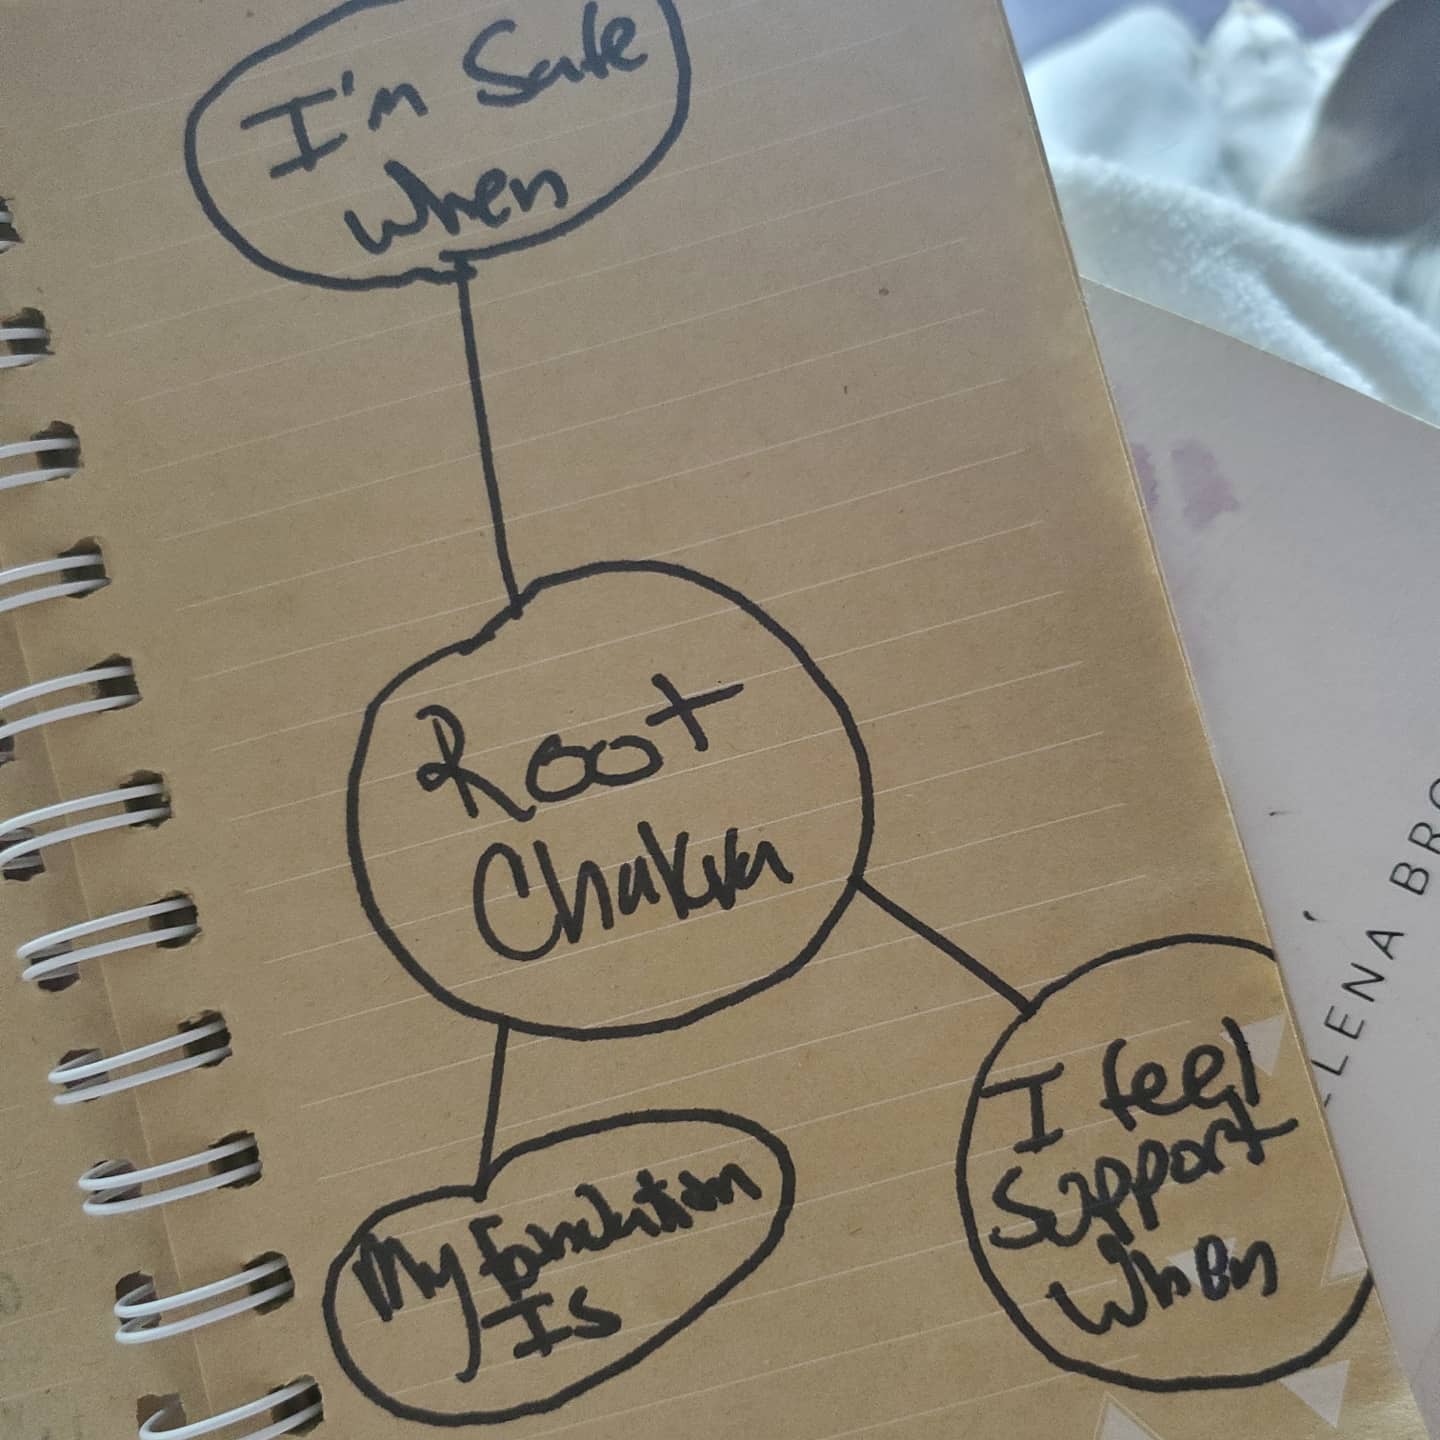 I'm Safe
when
Root
Chakra
My foundation
Is
I feel
Support
When
LENA BRO